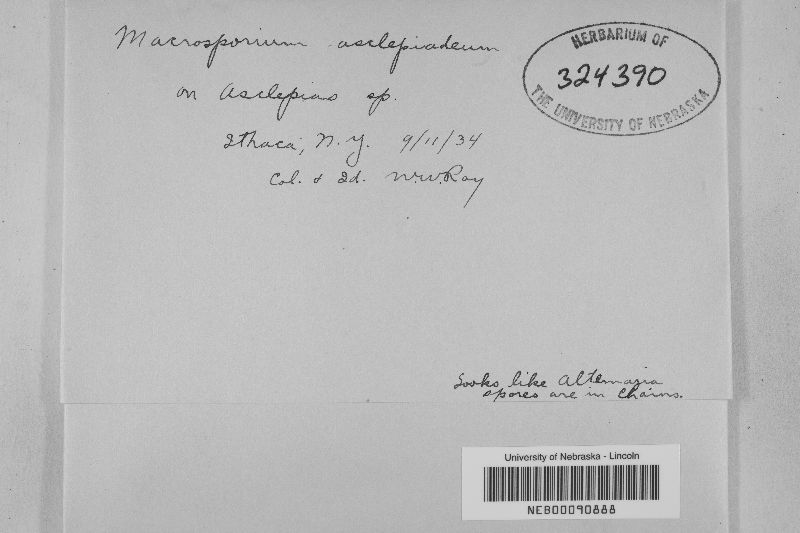 Macrosporium asclepiadeum
on Asclepias sp.
Ithaca, N.Y. 9/11/34
Col. & Id. W.W. Ray
HERBARIUM OF
324390
THE UNIVERSITY OF NEBRASKA
Looks like Alternaria
spores are in chains.
University of Nebraska - Lincoln
NEB00090888